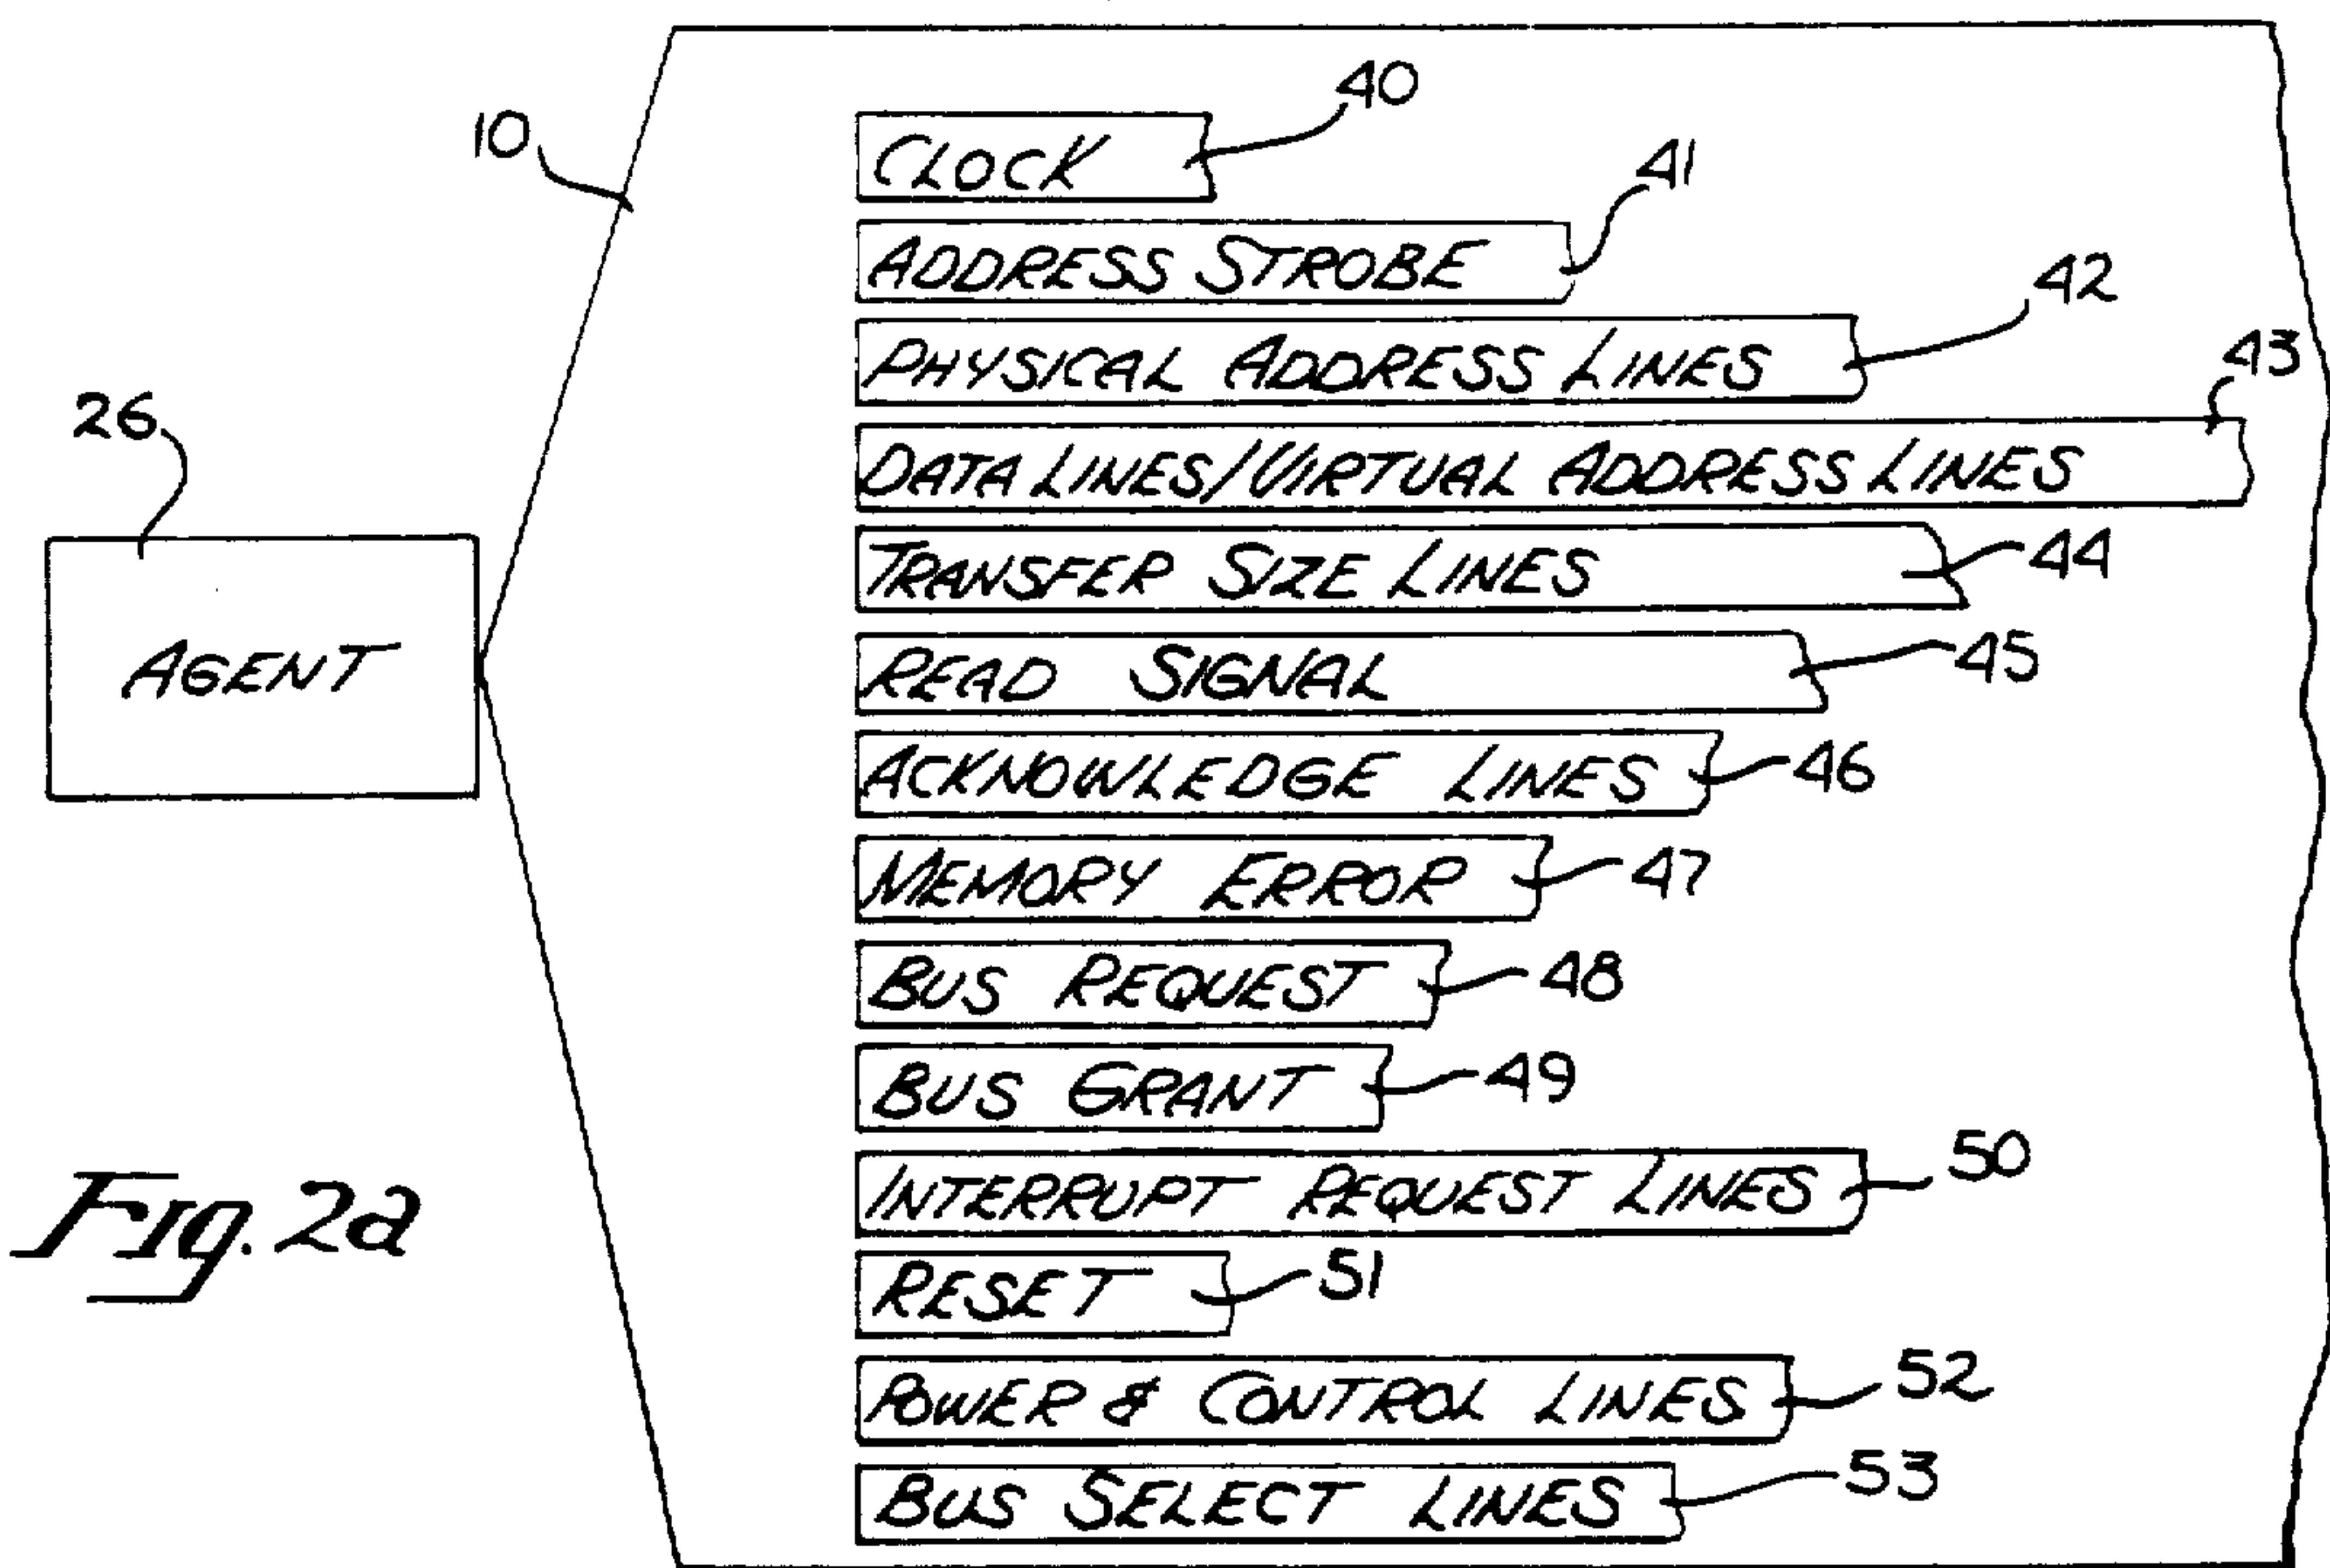 10
CLOCK 40
ADDRESS STROBE 41
PHYSICAL ADDRESS LINES 42
DATA LINES/VIRTUAL ADDRESS LINES 43
26
TRANSFER SIZE LINES 44
AGENT
READ SIGNAL 45
ACKNOWLEDGE LINES 46
MEMORY ERROR 47
BUS REQUEST 48
BUS GRANT 49
INTERRUPT REQUEST LINES 50
Fig. 2a
RESET 51
POWER & CONTROL LINES 52
BUS SELECT LINES 53